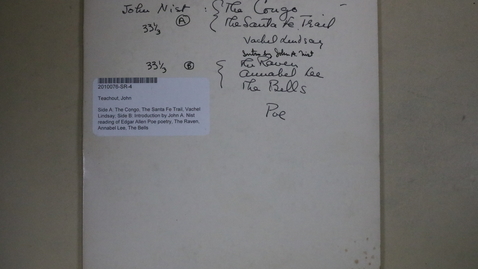 John Nist : { The Congo
33⅓ Ⓐ The Santa Fe Trail
Vachel Lindsay
Intro by John A. Nist
33⅓ Ⓑ { The Raven
Annabel Lee
The Bells
Poe
2010076-SR-4
Teachout, John
Side A: The Congo, The Santa Fe Trail, Vachel
Lindsay, Side B: Introduction by John A. Nist
reading of Edgar Allen Poe poetry, The Raven,
Annabel Lee, The Bells